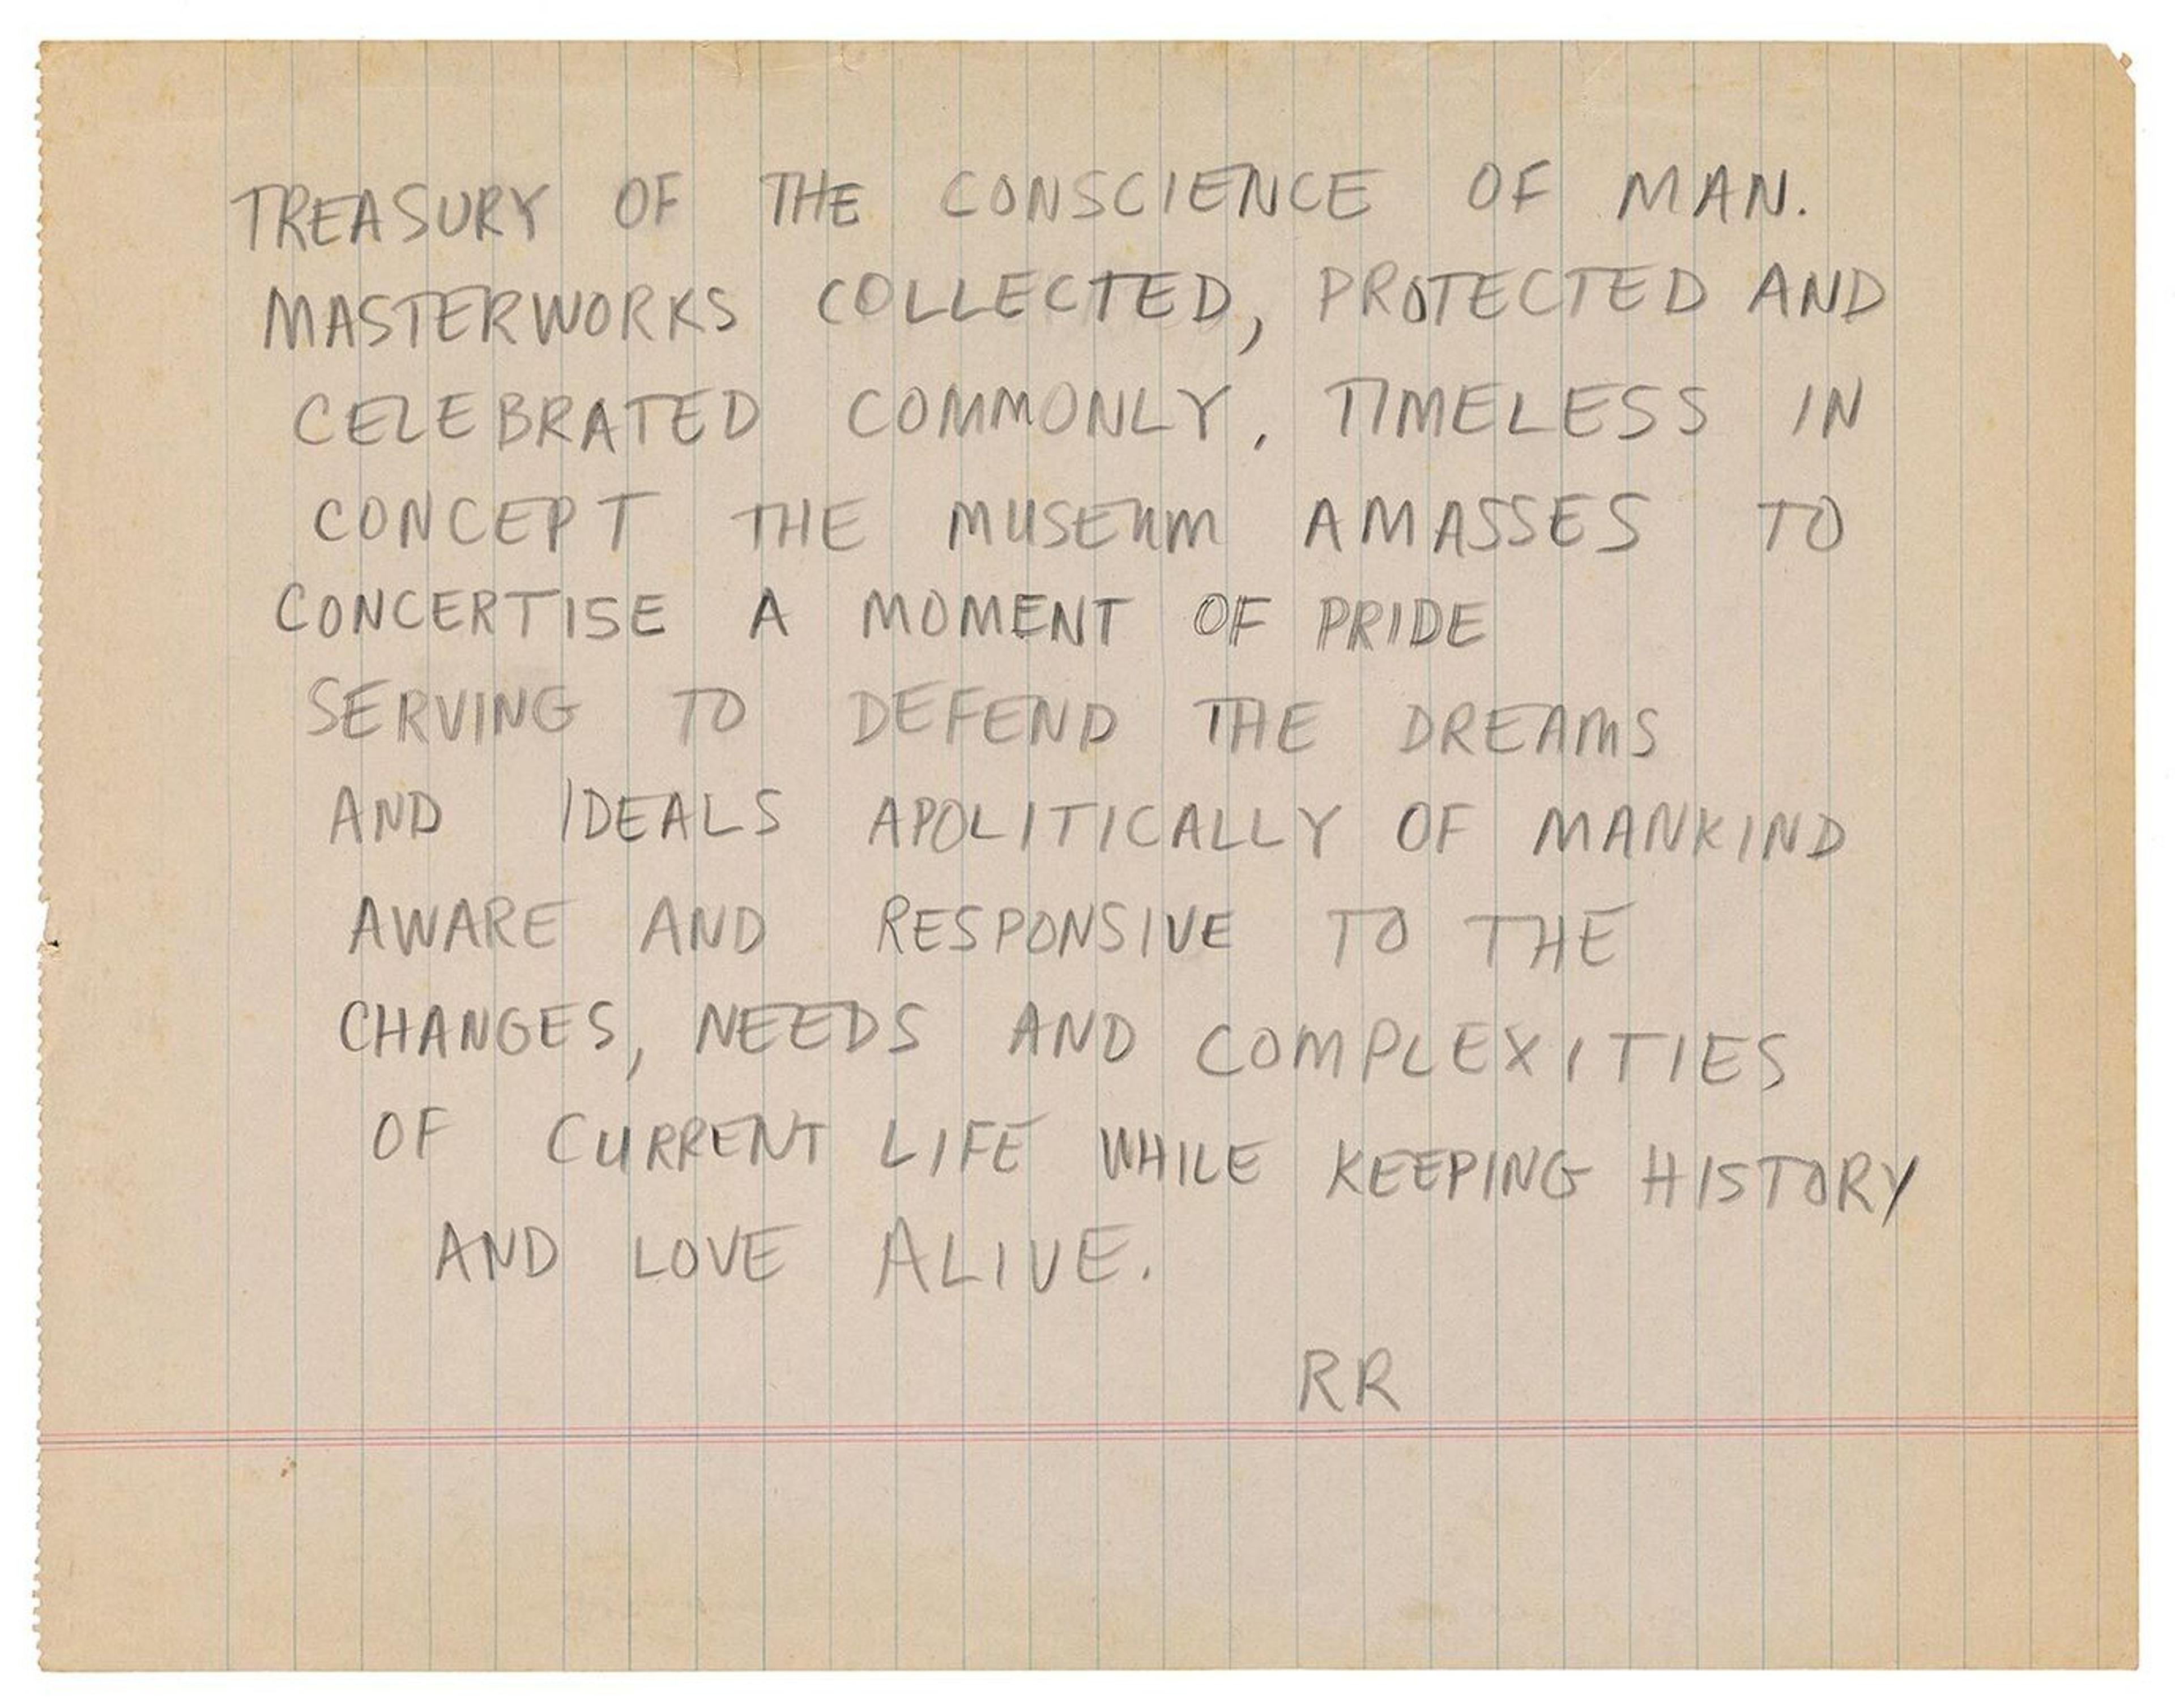 TREASURY OF THE CONSCIENCE OF MAN.
MASTERWORKS COLLECTED, PROTECTED AND
CELEBRATED COMMONLY. TIMELESS IN
CONCEPT THE MUSEUM AMASSES TO
CONCERTISE A MOMENT OF PRIDE
SERVING TO DEFEND THE DREAMS
AND IDEALS APOLITICALLY OF MANKIND
AWARE AND RESPONSIVE TO THE
CHANGES, NEEDS AND COMPLEXITIES
OF CURRENT LIFE WHILE KEEPING HISTORY
AND LOVE ALIVE.
RR